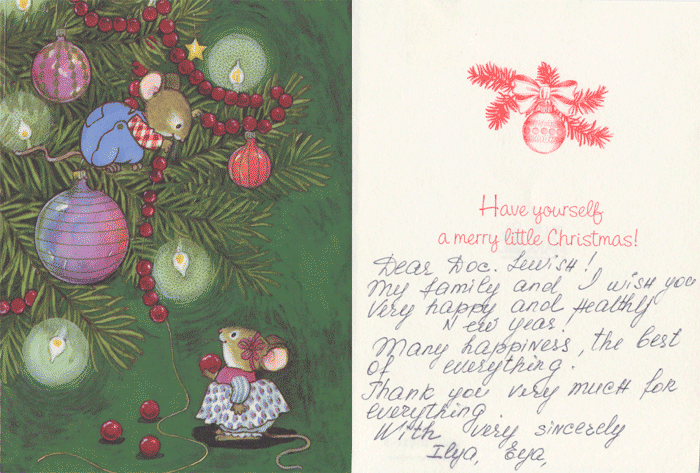 Have yourself
a merry little Christmas!
Dear Doc. Lewish!
My family and I wish you
very happy and healthy
New year!
Many happiness, the best
of everything.
Thank you very much for
everything.
With very sincerely
Ilya, Eya